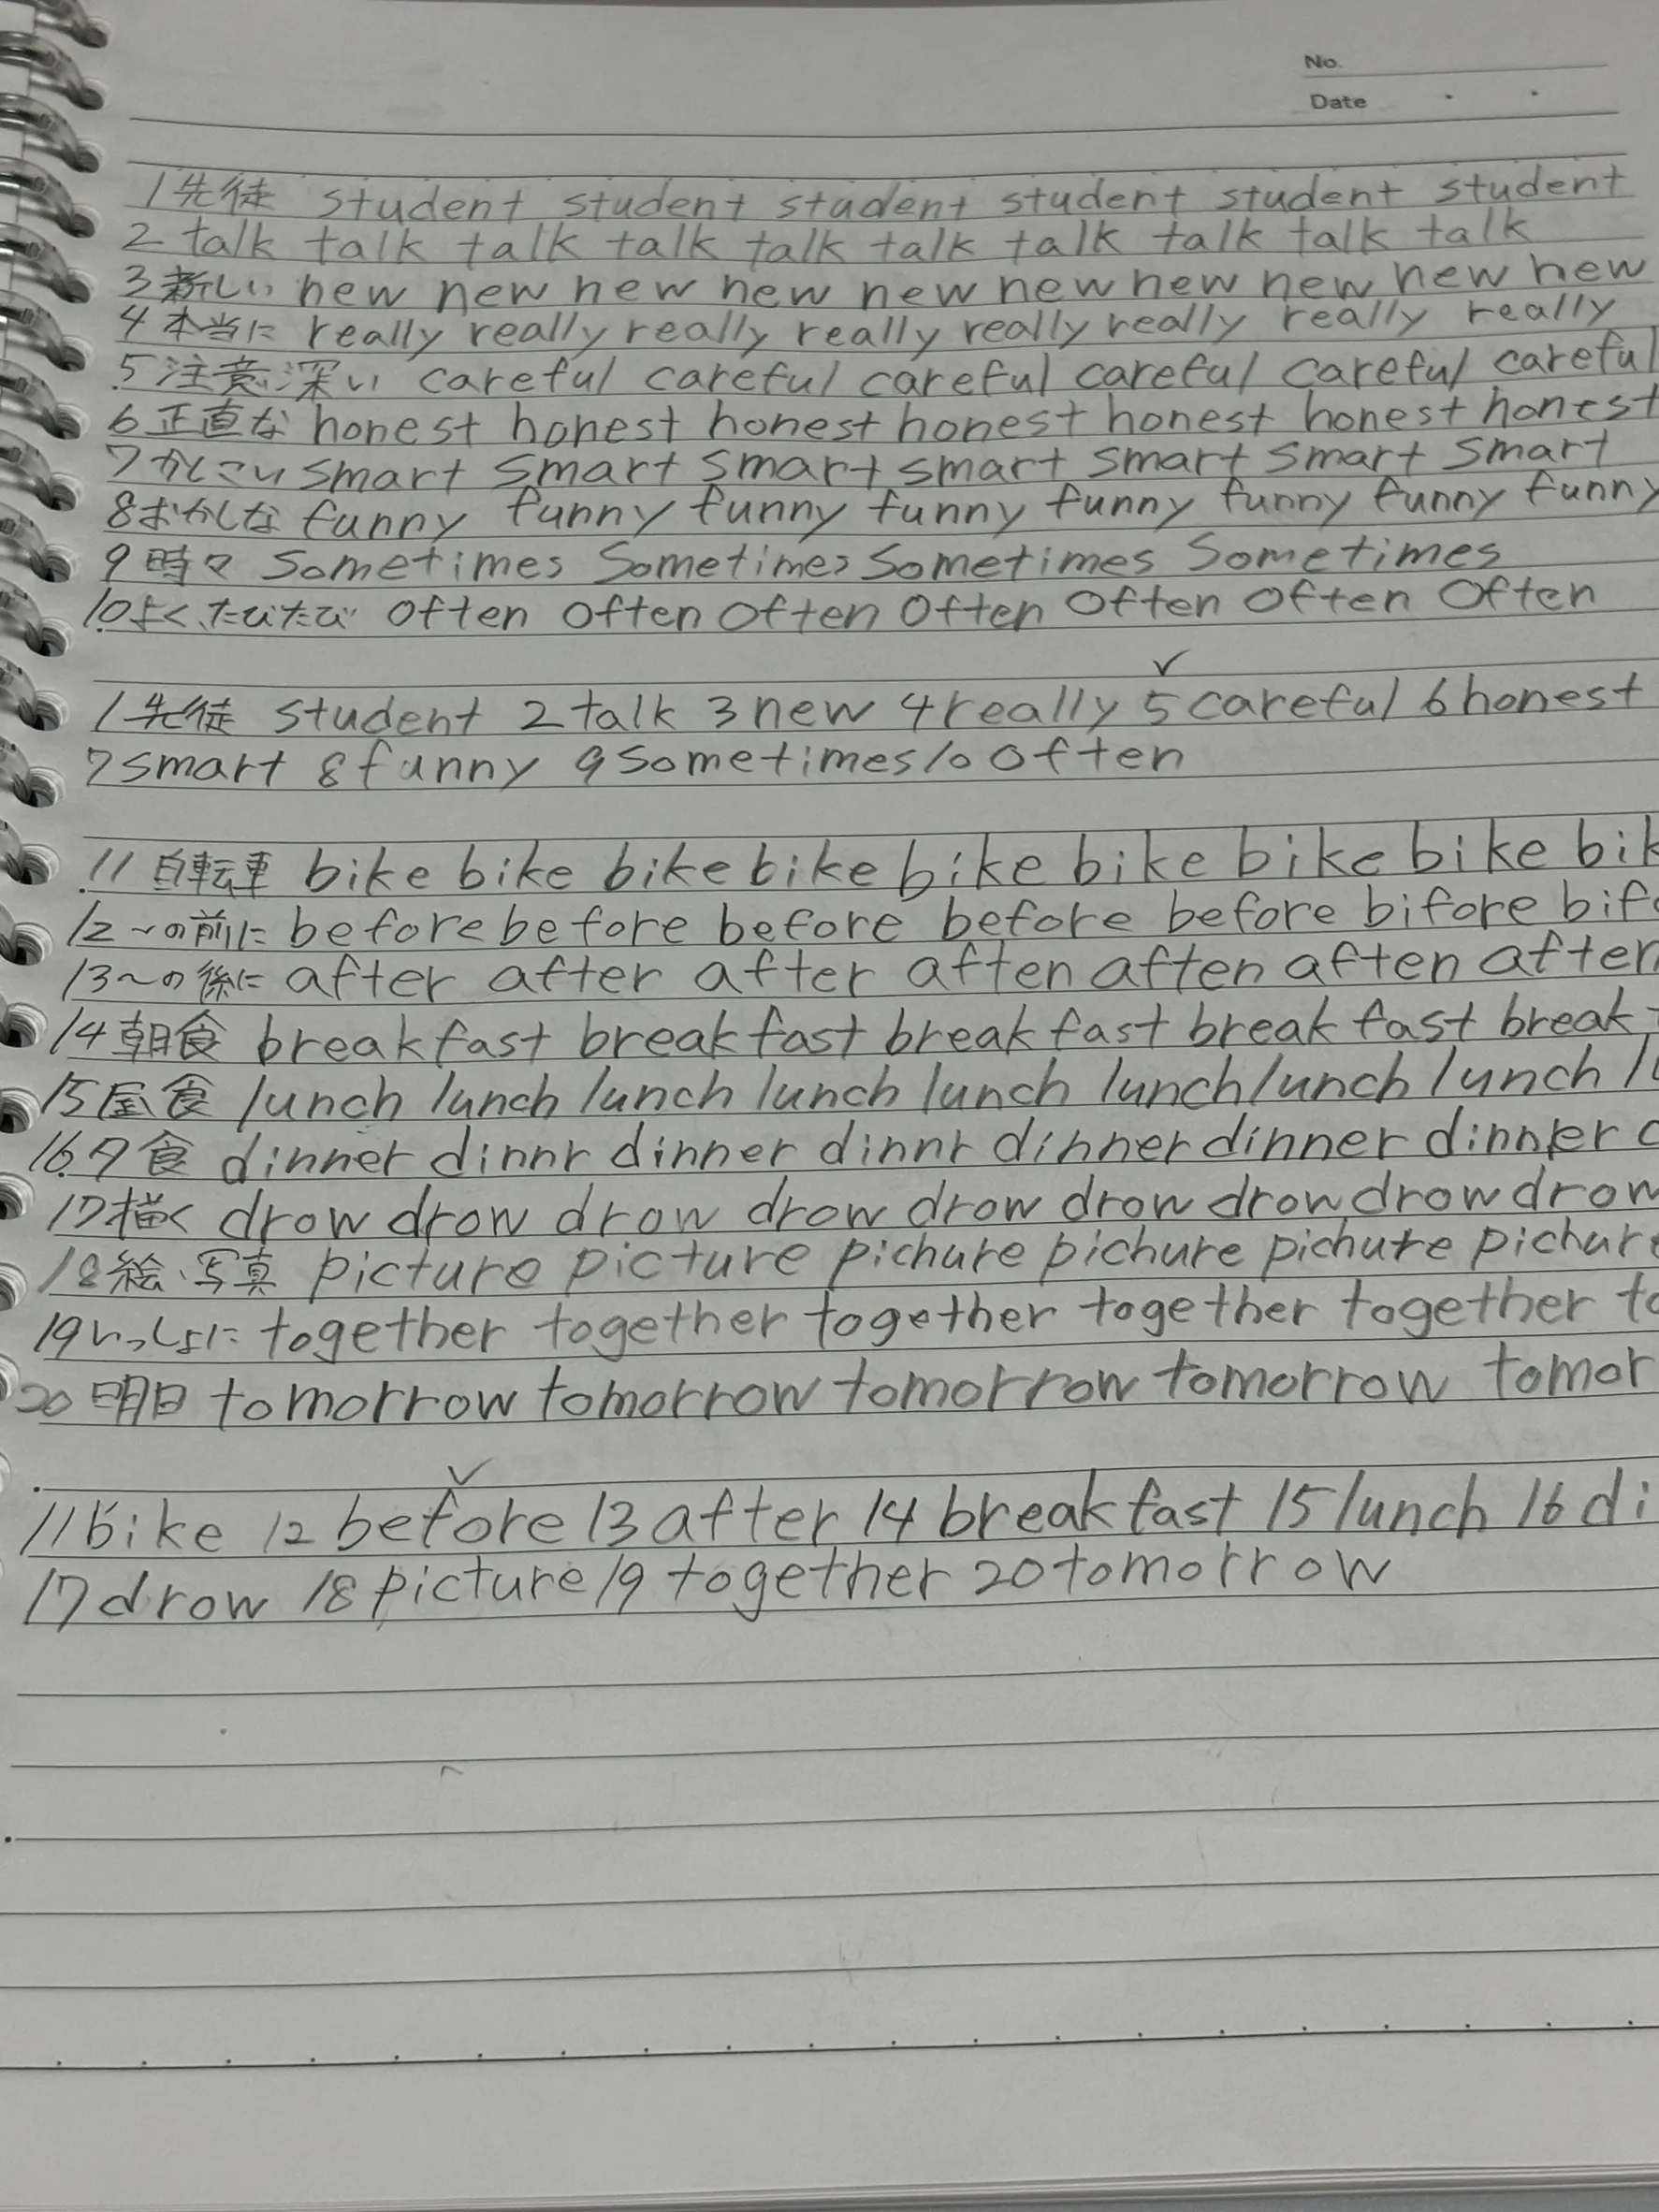 No.
Date
1先徒 student student student student student student
2 talk talk talk talk talk talk talk talk talk talk
3新しい new new new new new new new new new new
4本当に really really really really really really really really
5注意深い careful careful careful careful careful careful
6正直な honest honest honest honest honest honest honest
7かしこい smart smart smart smart smart smart smart
8おかしな funny funny funny funny funny funny funny funny
9時々 Sometimes Sometimes Sometimes Sometimes
10よく、たびたび often often often often often often often
1先徒 student 2 talk 3 new 4 really 5 careful 6 honest
7 smart 8 funny 9 sometimes 10 often
11自転車 bike bike bike bike bike bike bike bike bik
12～の前に before before before before before bifore bif
13～の後に after after after aften aften aften after
14朝食 breakfast breakfast breakfast breakfast break
15昼食 lunch lunch lunch lunch lunch lunch lunch lunch
16夕食 dinner dinnr dinner dinnr dinner dinner dinner
17描く drow drow drow drow drow drow drow drow
18絵、写真 picture picture pichure pichure pichure pichure
19いっしょに together together together together together to
20明日 tomorrow tomorrow tomorrow tomorrow tomor
11 bike 12 before 13 after 14 breakfast 15 lunch 16 di
17 drow 18 picture 19 together 20 tomorrow